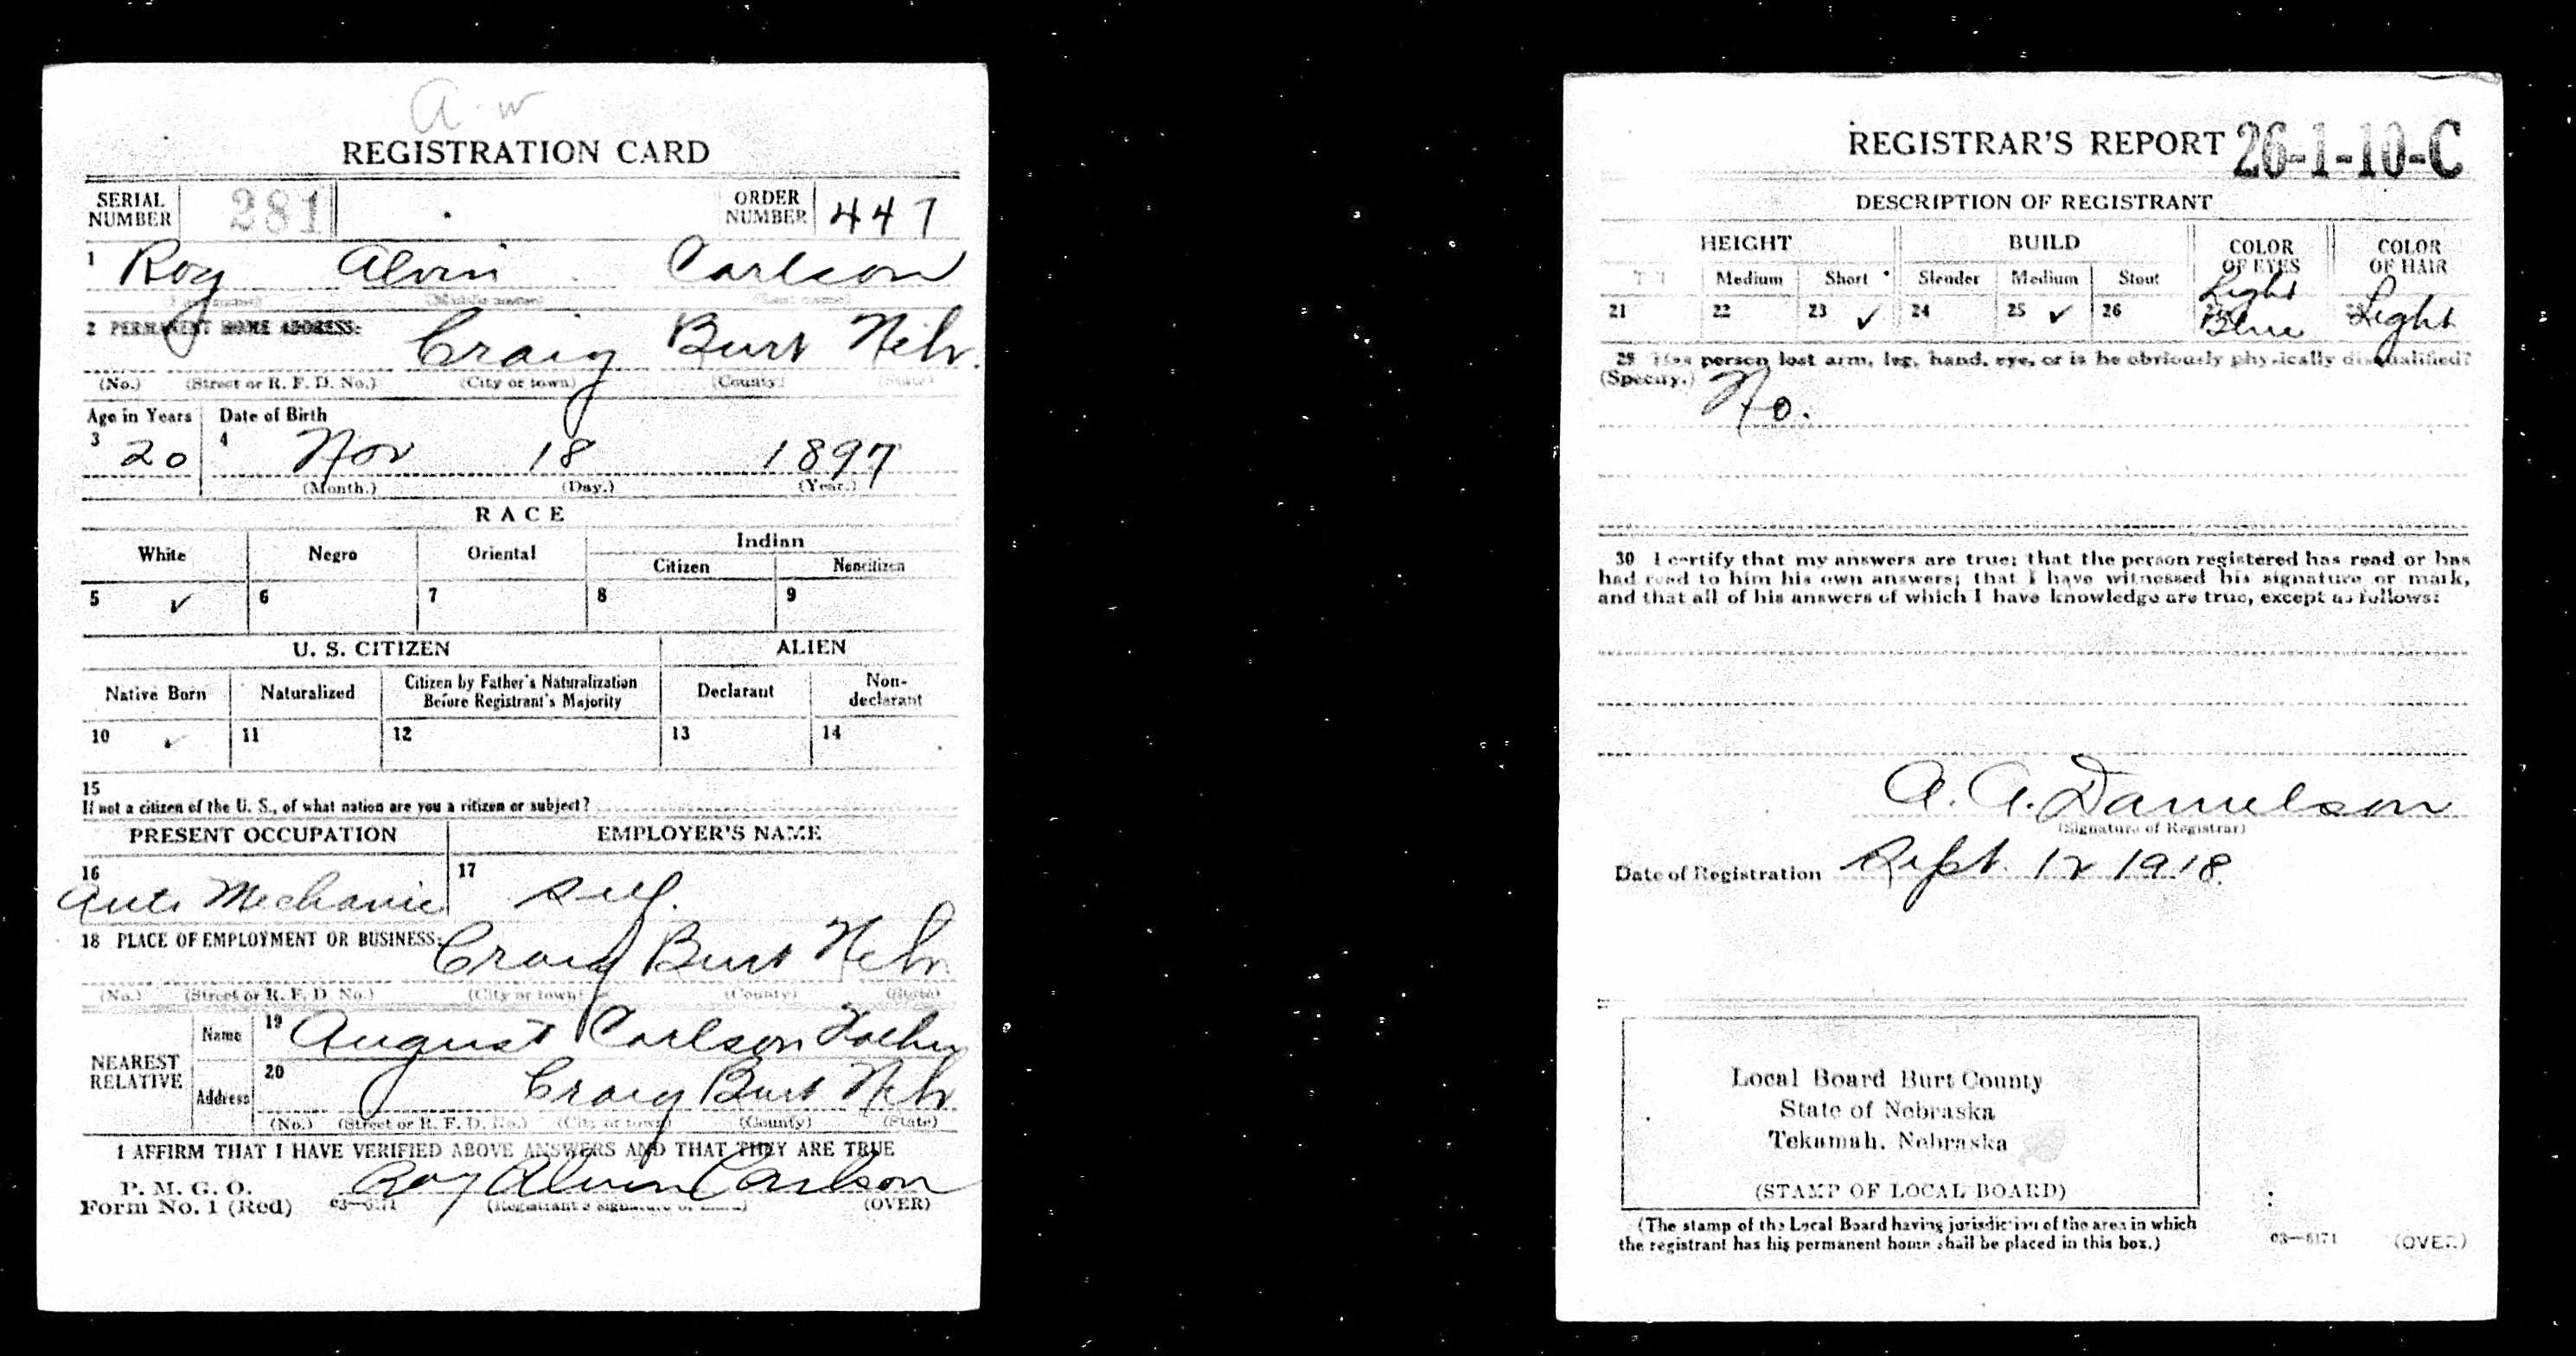 A-W
REGISTRATION CARD
SERIAL NUMBER 281 ORDER NUMBER 447
1 Roy Alvin Carlson
(First name) (Middle name) (Last name)
2 PERMANENT HOME ADDRESS:
Craig Burt Nebr.
(No.) (Street or R. F. D. No.) (City or town) (County) (State)
Age in Years Date of Birth
3 20 4 Nov 18 1897
(Month.) (Day.) (Year.)
RACE
White Negro Oriental Indian
Citizen Noncitizen
5 ✓ 6 7 8 9
U. S. CITIZEN ALIEN
Native Born Naturalized Citizen by Father's Naturalization Before Registrant's Majority Declarant Non-declarant
10 ✓ 11 12 13 14
15
If not a citizen of the U. S., of what nation are you a citizen or subject?
PRESENT OCCUPATION EMPLOYER'S NAME
16 Auto Mechanic 17 Self.
18 PLACE OF EMPLOYMENT OR BUSINESS:
Craig Burt Nebr.
(No.) (Street or R. F. D. No.) (City or town) (County) (State)
NEAREST RELATIVE
Name 19 August Carlson Father
Address 20 Craig Burt Nebr
(No.) (Street or R. F. D. No.) (City or town) (County) (State)
I AFFIRM THAT I HAVE VERIFIED ABOVE ANSWERS AND THAT THEY ARE TRUE
P. M. G. O.
Form No. 1 (Red) 03—6171 Roy Alvin Carlson
(Registrant's signature or mark) (OVER)
REGISTRAR'S REPORT 26-1-10-C
DESCRIPTION OF REGISTRANT
HEIGHT BUILD COLOR OF EYES COLOR OF HAIR
Medium Short Slender Medium Stout
21 22 23 ✓ 24 25 ✓ 26 Light Blue Light
29 Has person lost arm, leg, hand, eye, or is he obviously physically disqualified?
(Specify.) No.
30 I certify that my answers are true; that the person registered has read or has
had read to him his own answers; that I have witnessed his signature or mark,
and that all of his answers of which I have knowledge are true, except as follows:
A. A. Danielson
(Signature of Registrar)
Date of Registration Sept. 12 1918
Local Board Burt County
State of Nebraska
Tekamah, Nebraska
(STAMP OF LOCAL BOARD)
(The stamp of the Local Board having jurisdiction of the area in which
the registrant has his permanent home shall be placed in this box.)
03—6171 (OVER)